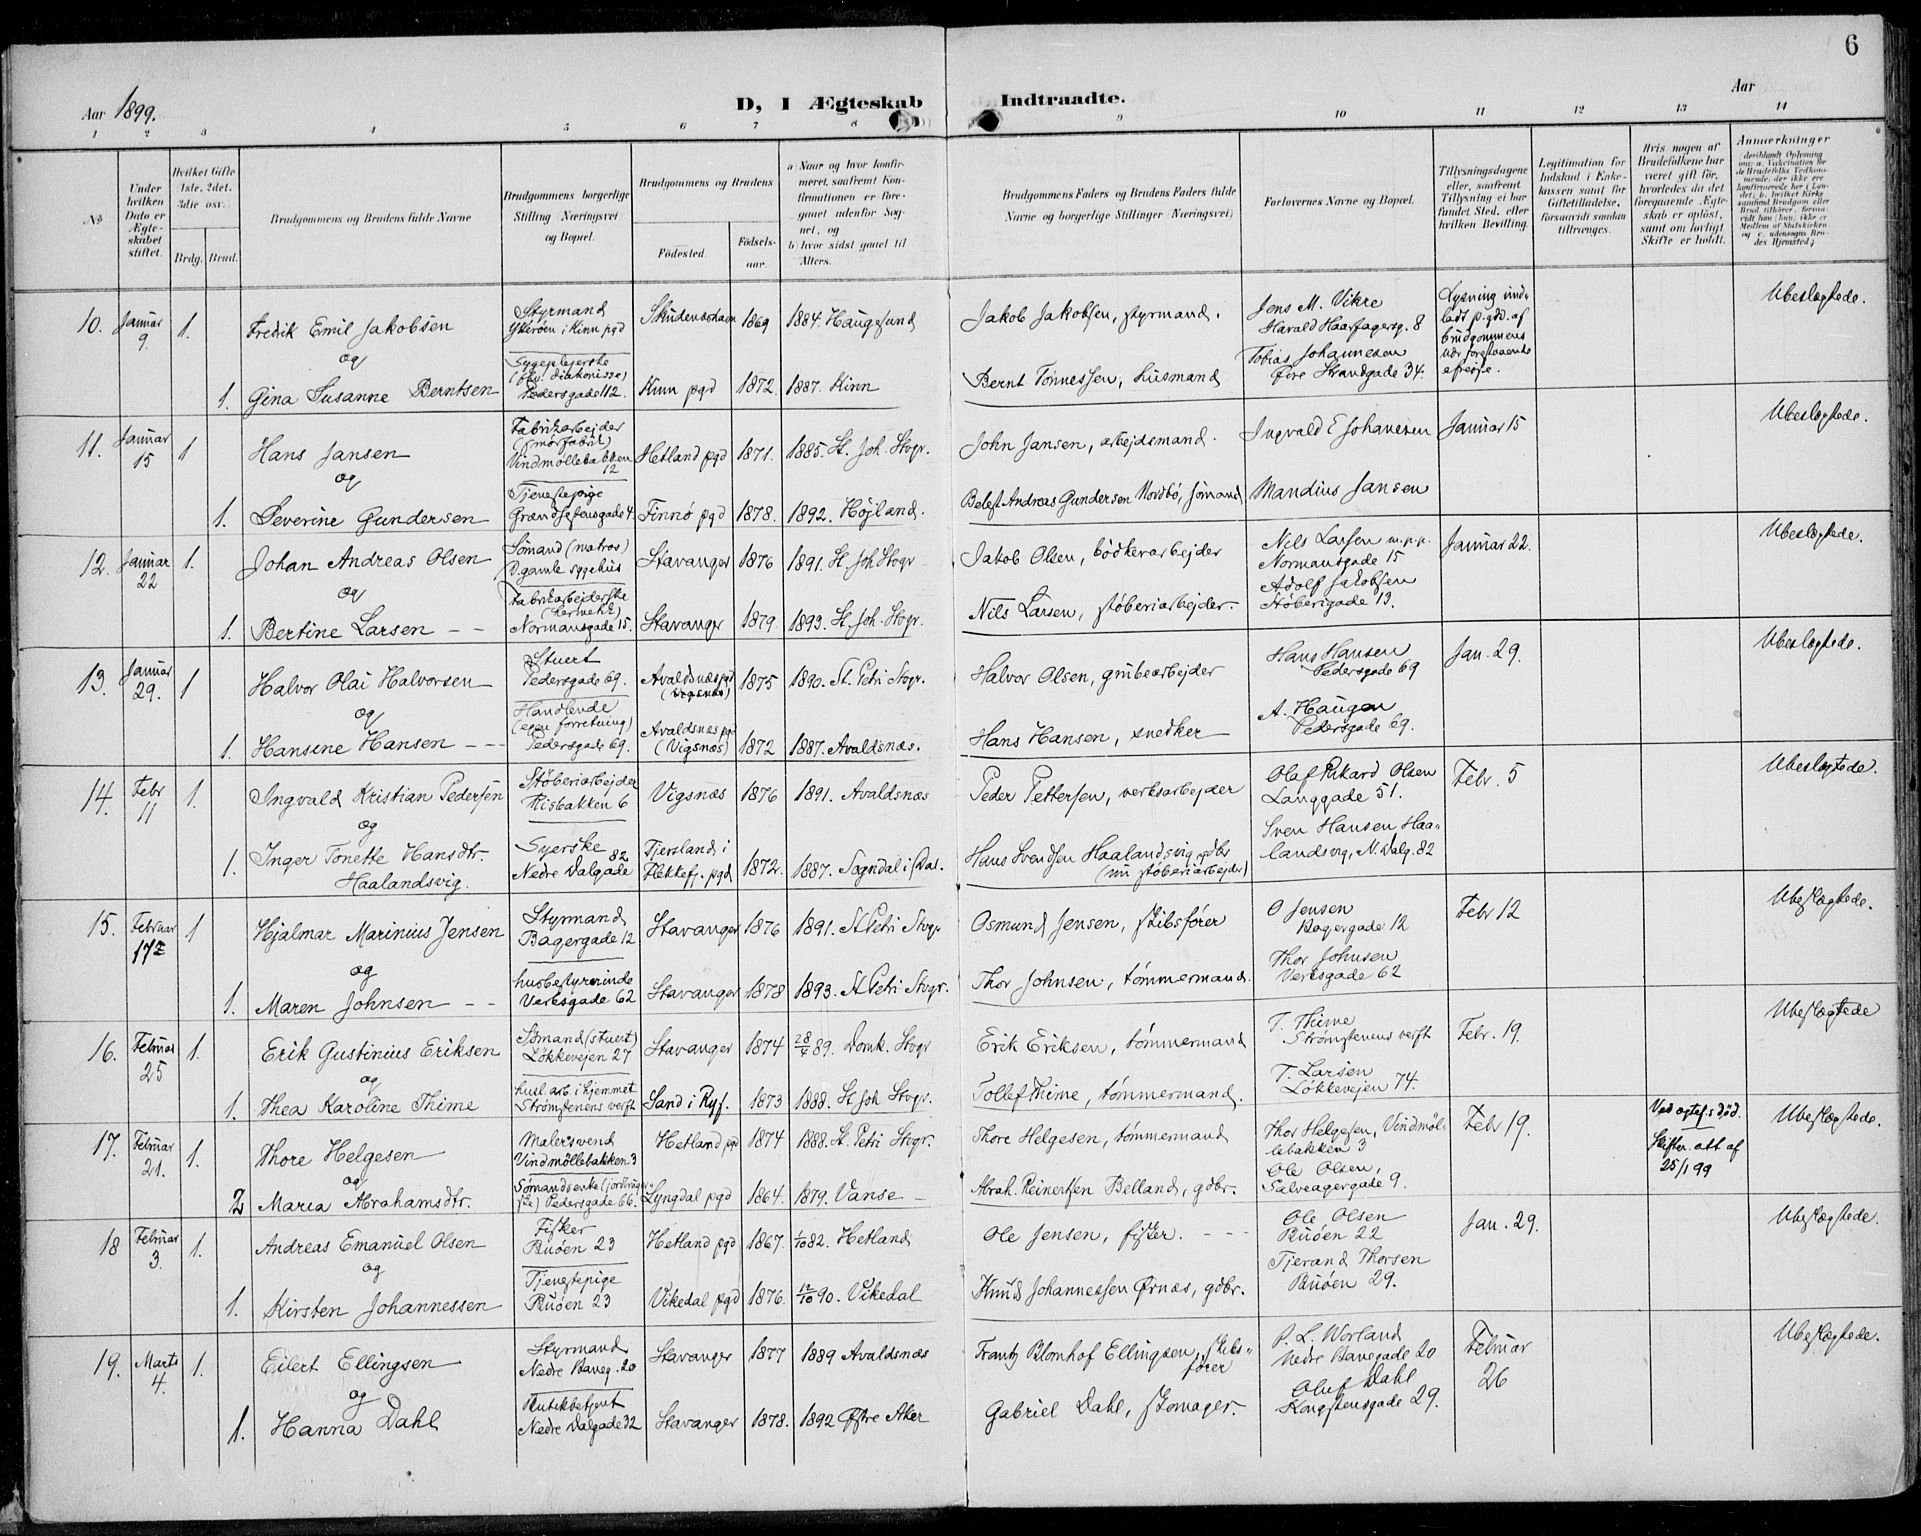 6
Aar 1899.
D, I Ægteskab Indtraadte.
Aar
1 2 3 4 5 6 7 8 9 10 11 12 13 14
No
Under hvilken Dato er Ægteskabet stiftet.
Hvilket Gifte 1ste, 2det, 3die osv.
Brdg. Brud.
Brudgommens og Brudens fulde Navne
Brudgommens borgerlige Stilling Næringsvei og Bopæl.
Brudgommens og Brudens
Födested.
Födselsaar.
a) Naar og hvor konfirmeret, saafremt Konfirmationen er foregaaet udenfor Sognet, og
b) hvor sidst gaaet til Alters.
Brudgommens Faders og Brudens Faders fulde Navne og borgerlige Stillinger Næringsvei)
Forlovernes Navne og Bopæl.
Tillysningsdagene eller, saafremt Tillysning ei har fundet Sted, efter hvilken Bevilling.
Legitimation for Indskud i Enkekassen samt for Giftetilladelse, forsaavidt saadan tiltrænges.
Hvis nogen af Brudefolkene har været gift för, hvorledes da det foregaaende Ægteskab er oplöst, samt om lovligt Skifte er holdt.
Anmærkninger
10. Januar 9. 1. Fredrik Emil Jakobsen
Styrmand
Ytterøen i Kinn pgd
Skudeneshavn 1869 1884. Haugesund
Jakob Jakobsen, styrmand.
Jens M. Vikre
Harald Haarfagersg. 8
Lysning undladt p.gd. af brudgommens nær forestaaende afreise.
Ubeslægtede.
og
1. Gina Susanne Berntsen
Sygeplejerske
(fhv. diakonisse)
Pedersgade 112.
Kinn pgd 1872. 1887. Kinn
Bernt Tønnessen, husmand
Tobias Johannesen
Øvre Strandgade 34.
11. Januar 15 1 Hans Jansen
Fabrikarbejder
(smørfabrik)
Vindmøllebakken 12
Hetland pgd 1871. 1885. St. Joh. Stvgr.
John Jansen, arbejdsmand.
Ingvald E Johanesen
Januar 15
Ubeslægtede.
og
1. Severine Gundersen
Tjenestepige
Grændsestensgade 4.
Finnø pgd 1878. 1892. Højland.
Andreas Gundersen Nordbø, sømand
Mandius Jansen
12. Januar 22 1. Johan Andreas Olsen
Sømand (matros)
D. gamle sygehus
Stavanger 1876 1891. St. Joh Stvgr
Jakob Olsen, bødkerarbejder
Nils Larsen m.p.p.
Normansgade 15
Januar 22.
Ubeslægtede.
og
1. Bertine Larsen
Fabrikarbejderske
(hermetik)
Normansgade 15.
Stavanger 1879 1893. St. Joh. Stvgr.
Nils Larsen, støberiarbejder.
Adolf Jakobsen
Støberigade 13.
13. Januar 29. 1 Halvor Olai Halvorsen
Stuert
Pedersgade 69.
Avaldsnæs pgd
(Vigsnæs)
1875 1890. St. Petri Stvgr.
Halvor Olsen, grubearbejder
Hans Hansen
Pedersgade 69
Jan. 29.
Ubeslægtede.
og
1. Hansine Hansen
Handlende
(egen forretning)
Pedersgade 69.
Avaldsnæs pgd
(Vigsnæs)
1872 1887. Avaldsnæs.
Hans Hansen, snedker
A. Haugen
Pedersgade 69.
14. Febr 11 1. Ingvald Kristian Pedersen
Støberiarbejder
Risbakken 6
Vigsnæs 1876 1891. Avaldsnæs
Peder Pettersen, verksarbejder
Olaf Rikard Olsen
Langgade 51.
Febr. 5
Ubeslægtede.
og
1. Inger Tonette Hansdtr. Haalandsvig.
Syerske
Nedre Dalgade 82
Fjersland i Flekkefj. pgd
1872. 1887. Sogndal i Dal.
Hans Svendsen Haalandsvig, gdbr
(nu støberiarbejder)
Sven Hansen Haalandsvig, N. Dalg. 82
15. Februar 17 1 Hjalmar Marinius Jensen
Styrmand
Bagergade 12
Stavanger 1876 1891. St Petri Stvgr
Osmund Jensen, skibsfører
O Jensen
Bagergade 12
Febr 12
Ubeslægtede.
og
1. Maren Johnsen
husbestyrerinde
Verksgade 62
Stavanger 1878 1893. St Petri Stvgr.
Thor Johnsen, tømmermand.
Thor Johnsen
Verksgade 62
16. Februar 25 1. Erik Gustinius Eriksen
Sømand (stuert)
Løkkevejen 27
Stavanger 1874 28/4 89. Domk. Stvgr
Erik Eriksen, tømmermand
T. Thime
Strømstenens verft
Febr. 19.
Ubeslægtede
og
1. Thea Karoline Thime
husl. arb. i hjemmet
Strømstenens verft
Sand i Ryf. 1873 1888. St Joh Stvgr.
Tollef Thime, tømmermand.
T. Larsen
Løkkevejen 74.
17. Februar 21. 1. Thore Helgesen
Malersvend
Vindmøllebakken 3
Hetland pgd 1874 1888. St. Petri Stvgr.
Thore Helgesen, tømmermand
Thor Helgesen, Vindmøllebakken 3
Febr 19.
Ved ægtef.s død.
Skifteratt af 25/1 99
Ubeslægtede.
og
2 Maria Abrahamsdtr.
Sømandsenke
Pedersgade 66.
Lyngdal pgd 1864. 1879. Vanse
Abrah. Reinertsen Belland, gdbr.
Ole Olsen,
Salveagergade 9.
18 Februar 3. 1. Andreas Emanuel Olsen
Fisker
Buøen 23
Hetland pgd 1867. 1/10 82. Hetland
Ole Jensen, fisker.
Ole Olsen
Buøen 22
Jan. 29.
Ubeslægtede.
og
1. Kirsten Johannessen
Tjenestepige
Buøen 23
Vikedal pgd 1876. 12/10 90. Vikedal
Knud Johannessen Ørnæs, gdbr.
Tjerand Thorsen
Buøen 29.
19. Marts 4. 1. Eilert Ellingsen
Styrmand
Nedre Baneg. 20
Stavanger 1877 1889 Avaldsnæs
Frantz Blomhof Ellingsen, skibsfører
P. L. Worland
Nedre Banegade 20
Februar 26
Ubeslægtede.
og
1. Hanna Dahl
Butikbetjent
Nedre Dalgade 32
Stavanger 1878. 1892 Østre Aker
Gabriel Dahl, skomager.
Oluf Dahl
Kongstensgade 29.